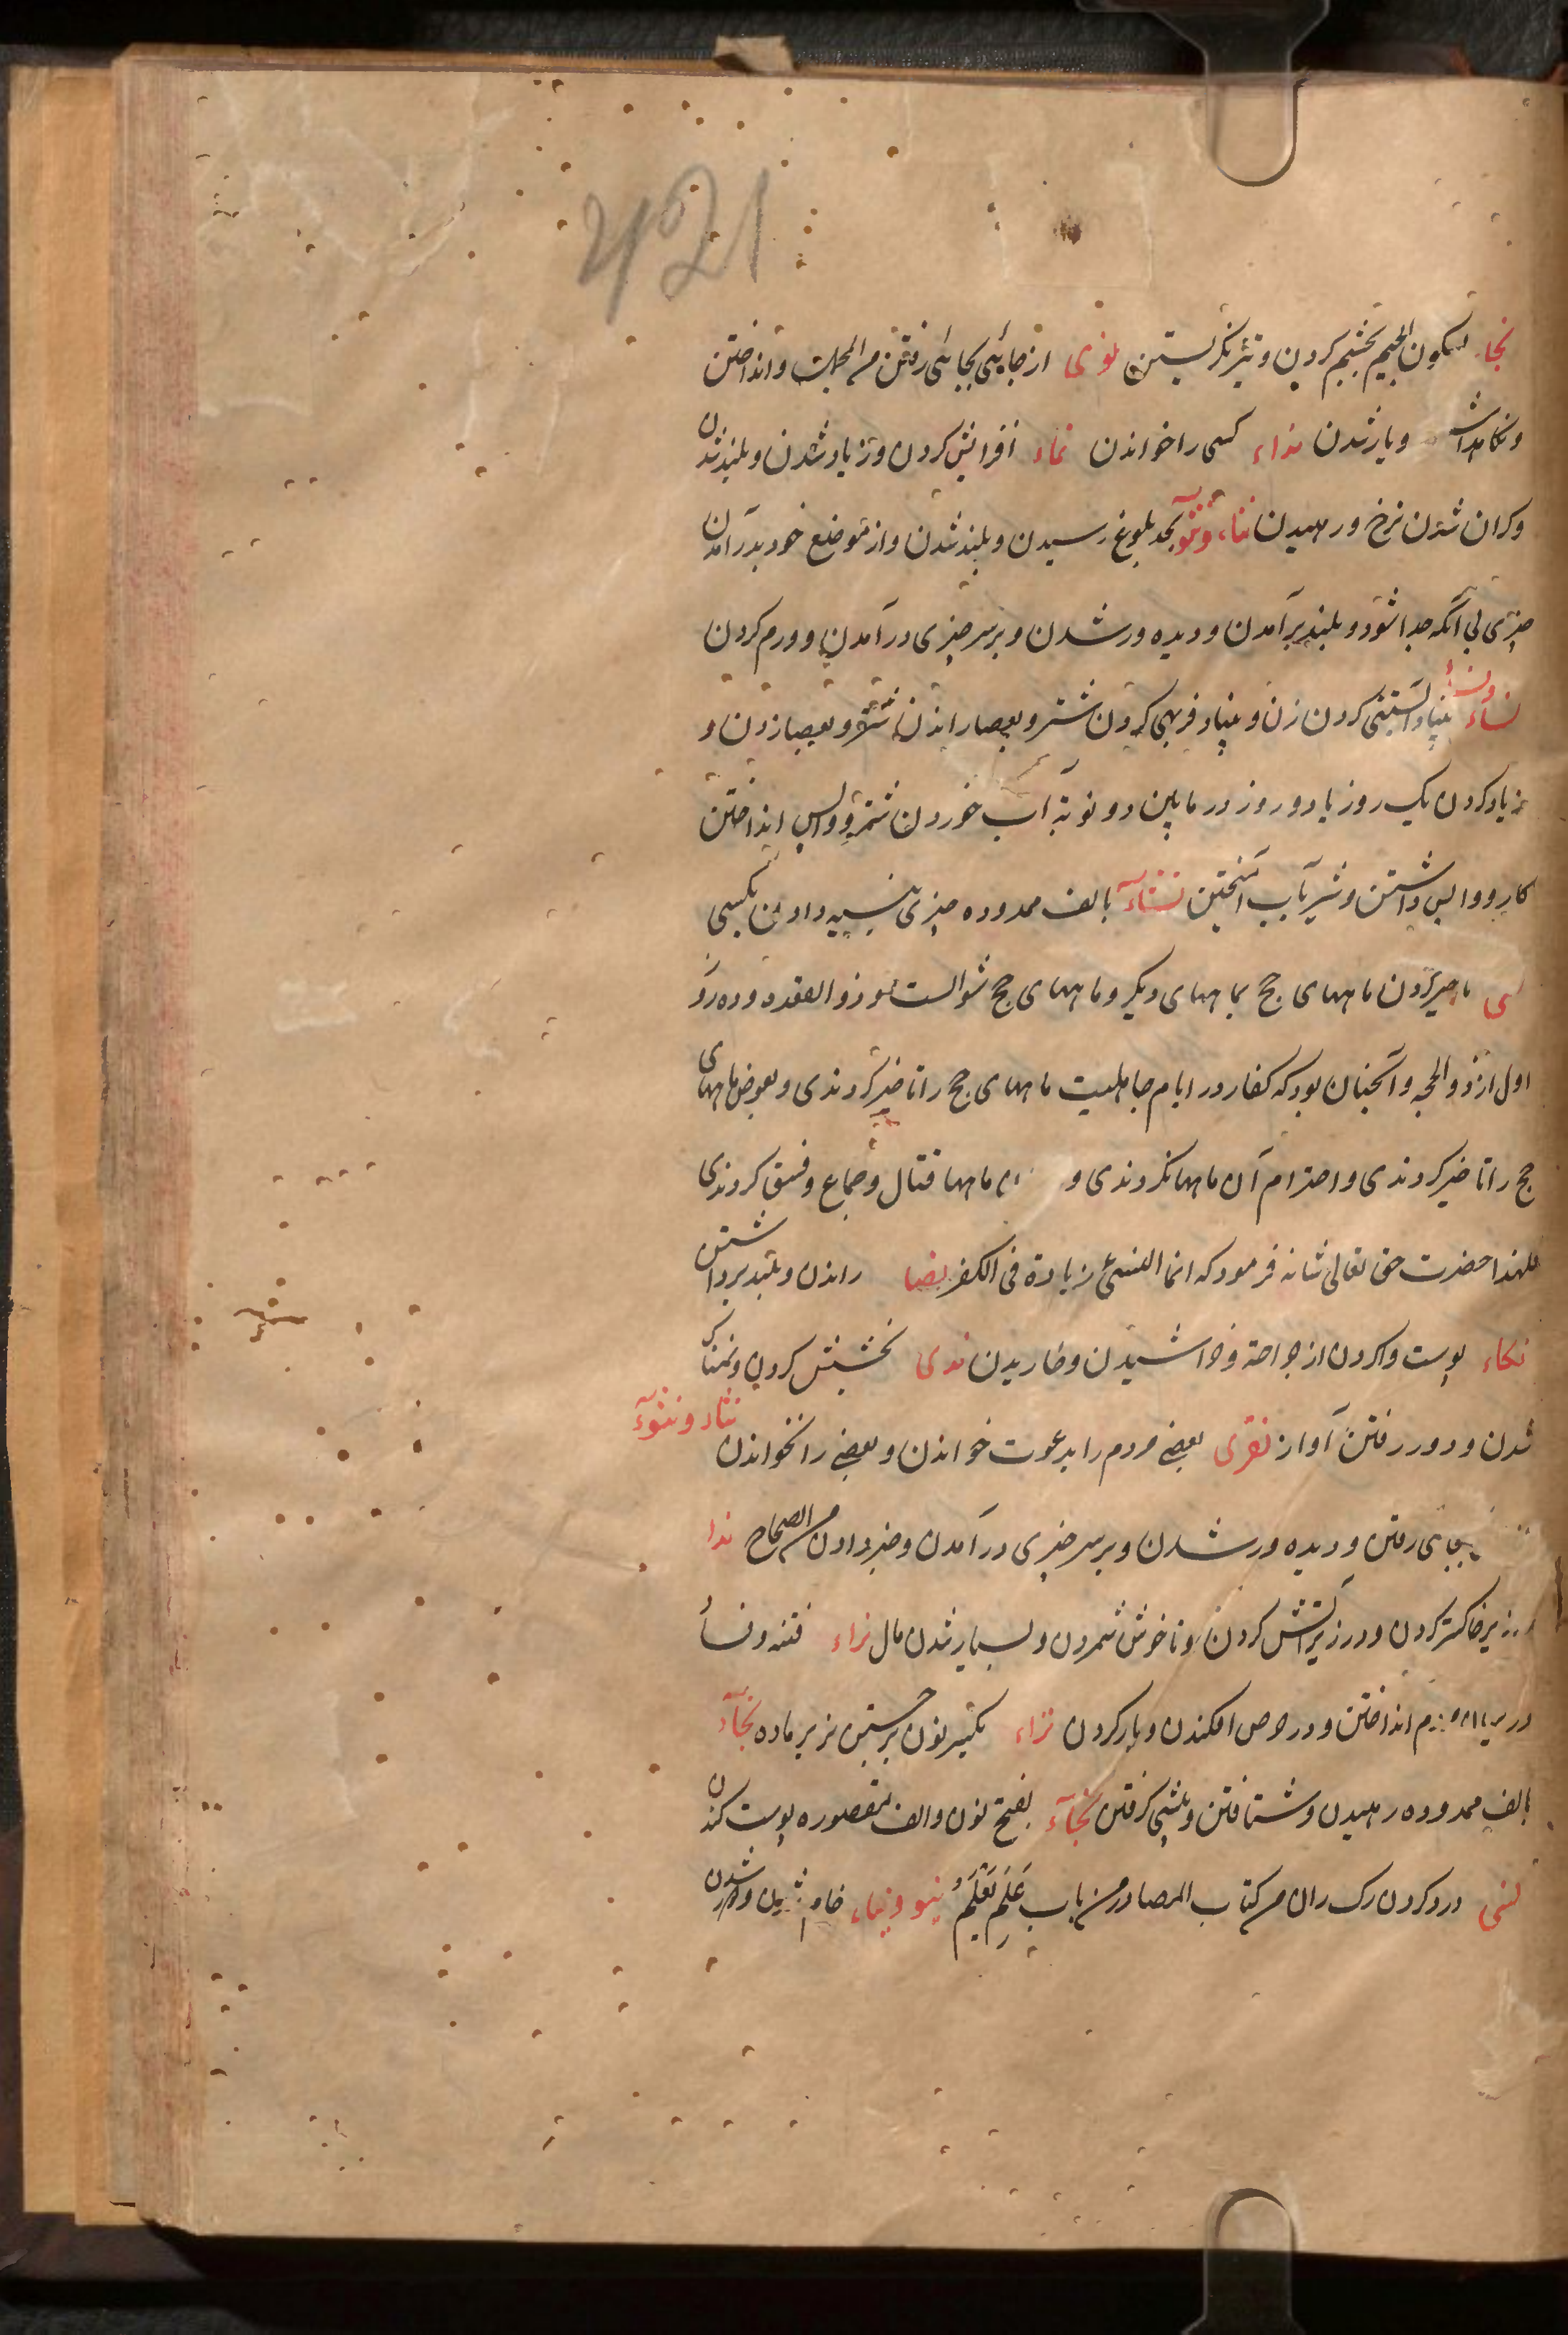 421
نجاء بسکون الجیم بخشم کردن و تیز نگریستن نوی از جائی بجائی رفتن من المجلب و انداختن
و نکاهداشت و یار شدن نداء کسی را خواندن نماء افزایش کردن و زیاد شدن و بلند شدن
و کران شدن نرخ و رهیدن نتاء و نتوء بحد بلوغ رسیدن و بلند شدن و از موضع خود بدر آمدن
چیزی بی آنکه جدا شود و بلند بر آمدن و دیده ور شدن و بر سر چیزی در آمدن و ورم کردن
نساء و نسأ بنیاد آبستنی کردن زن و بنیاد فربهی کردن شتر و بعصا راندن شتر و بعصا زدن و
زیاد کردن یک روز یا دو روز در مابین دو نوبة آب خوردن شتر و واپس انداختن
کار و واپس داشتن و شیر بآب آمیختن نساء بالف ممدوده چیزی بنسیه دادن بکسی
نسی تاخیر کردن ماههای حج بماههای دیگر و ماههای حج شوالست و ذو القعده و ده روز
اول از ذو الحجه و آنچنان بود که کفار در ایام جاهلیت ماههای حج را تاخیر کردندی و بعوض ماههای
حج را تاخیر کردندی و احترام آن ماهها نکردندی و ماهها قتال و جماع و فسق کردندی
لهذا حضرت حق تعالی شانه فرمود که انما النسیء زیادة فی الکفر نصا راندن و بلند برداشتن
نکاء پوست وا کردن از جراحة و خراشیدن و خاریدن ندی بخشش کردن و نمناک
شدن و دور رفتن آواز نقری بعضی مردم را بدعوت خواندن و بعضی را نخواندن نثاء و نثوء
بجای رفتن و دیده ور شدن و بر سر چیزی در آمدن و خبر دادن من الصحاح ندا
در زیر خاکستر کردن و در زیر آتش کردن و ناخوش شمردن و بسیار شدن مال نزاء فتنه و فسا
در انداختن و در حوص افکندن و بار کردن نزاء بکسر نون بر جستن نر بر ماده نجاء
بالف ممدوده رهیدن و شتافتن و پیشی کرفتن نجاء بفتح نون و الف مقصوره پوست کندن
نسی درد کردن رک ران من کتاب المصادر من باب عَلِمَ یَعْلَمُ نیو و نیاء خام و